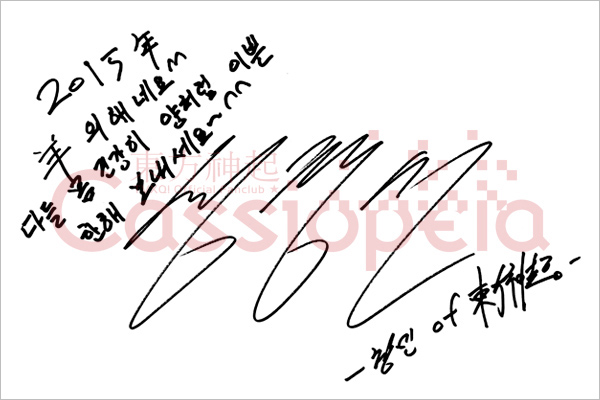 2015年
羊의 해네요~
다들 몸 건강이 양처럼 이쁜
한해 보내세요~^^
東方神起
Official Fanclub ★
Cassiopeia
-창민 of 東方神起-